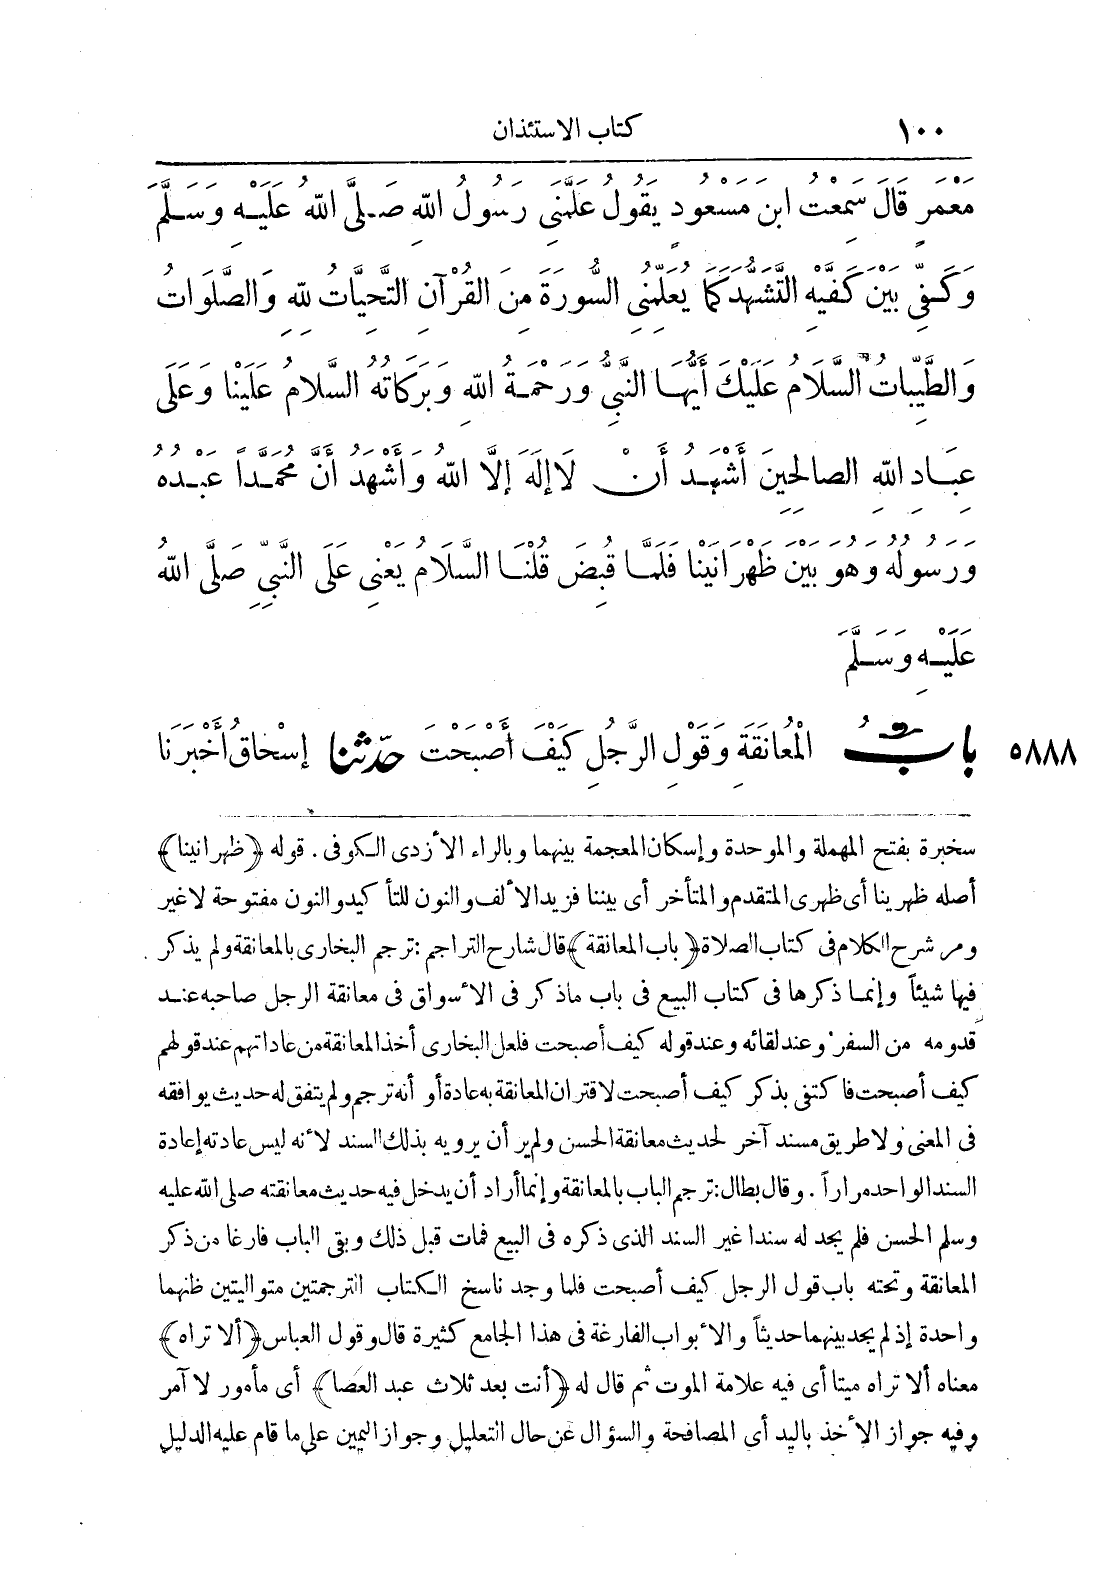 ١٠٠ كتاب الاستئذان
مَعْمَرٍ قَالَ سَمِعْتُ ابنَ مَسْعُودٍ يَقُولُ عَلَّمَنِى رَسُولُ اللهِ صَلَّى اللهُ عَلَيْهِ وَسَلَّمَ
وَكَفِّى بَيْنَ كَفَّيْهِ التَّشَهُّدَ كَمَا يُعَلِّمُنِى السُّورَةَ مِنَ القُرْآنِ التَّحِيَّاتُ لِلّهِ وَالصَّلَوَاتُ
وَالطَّيِّبَاتُ السَّلَامُ عَلَيْكَ أَيُّهَا النَّبِىُّ وَرَحْمَةُ اللهِ وَبَرَكَاتُهُ السَّلَامُ عَلَيْنَا وَعَلَى
عِبَادِ اللهِ الصالحِينَ أَشْهَدُ أَنْ لَا إِلَهَ إِلَّا اللهُ وَأَشْهَدُ أَنَّ مُحَمَّداً عَبْدُهُ
وَرَسُولُهُ وَهُوَ بَيْنَ ظَهْرَانَيْنَا فَلَمَّا قُبِضَ قُلْنَا السَّلَامُ يَعْنِى عَلَى النَّبِىِّ صَلَّى اللهُ
عَلَيْهِ وَسَلَّمَ
٥٨٨٨ بابُ الْمُعَانَقَةِ وَقَوْلِ الرَّجُلِ كَيْفَ أَصْبَحْتَ حَدَّثَنَا إِسْحَاقُ أَخْبَرَنَا
سخبرة بفتح المهملة والموحدة وإسكان المعجمة بينهما وبالراء الأزدى الكوفى. قوله ﴿ظهرانينا﴾
أصله ظهرينا أى ظهرى المتقدم والمتأخر أى بيننا فزيد الألف والنون للتأكيد والنون مفتوحة لا غير
ومر شرح الكلام فى كتاب الصلاة ﴿باب المعانقة﴾ قال شارح التراجم: ترجم البخارى بالمعانقة ولم يذكر
فيها شيئاً وإنما ذكرها فى كتاب البيع فى باب ماذكر فى الأسواق فى معانقة الرجل صاحبه عند
قدومه من السفر وعند لقائه وعند قوله كيف أصبحت فلعل البخارى أخذ المعانقة من عاداتهم عند قولهم
كيف أصبحت فاكتفى بذكر كيف أصبحت لاقتران المعانقة به عادة أو أنه ترجم ولم يتفق له حديث يوافقه
فى المعنى ولا طريق مسند آخر لحديث معانقة الحسن ولم ير أن يرويه بذلك السند لأنه ليس عادته إعادة
السند الواحد مراراً. وقال بطال: ترجم الباب بالمعانقة وإنما أراد أن يدخل فيه حديث معانقته صلى الله عليه
وسلم الحسن فلم يجد له سندا غير السند الذى ذكره فى البيع فمات قبل ذلك وبقى الباب فارغا من ذكر
المعانقة وتحته باب قول الرجل كيف أصبحت فلما وجد ناسخ الكتاب الترجمتين متواليتين ظنهما
واحدة إذ لم يجد بينهما حديثاً والأبواب الفارغة فى هذا الجامع كثيرة قال وقول العباس ﴿ألا تراه﴾
معناه ألا تراه ميتا أى فيه علامة الموت ثم قال له ﴿أنت بعد ثلاث عبد العصا﴾ أى مأمور لا آمر
وفيه جواز الأخذ باليد أى المصافحة والسؤال عن حال التعليل وجواز اليمين على ما قام عليه الدليل